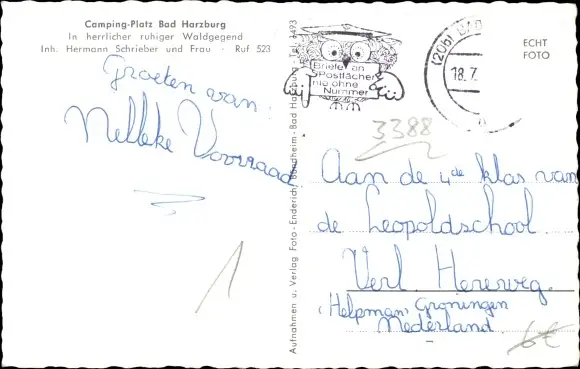 Camping-Platz Bad Harzburg
In herrlicher ruhiger Waldgegend
Inh. Hermann Schrieber und Frau · Ruf 523
Groeten van:
Nelleke Voorraad.
1
Aufnahmen u. Verlag Foto-Enderich, Bündheim-Bad Harzburg, Tel. 3493
Briefe an
Postfächer
nie ohne
Nummer
(20b) BAD
18.7.
ECHT
FOTO
3388
Aan de 4de klas van
de Leopoldschool.
Verl. Hereweg.
(Helpman) Groningen
Nederland.
6€